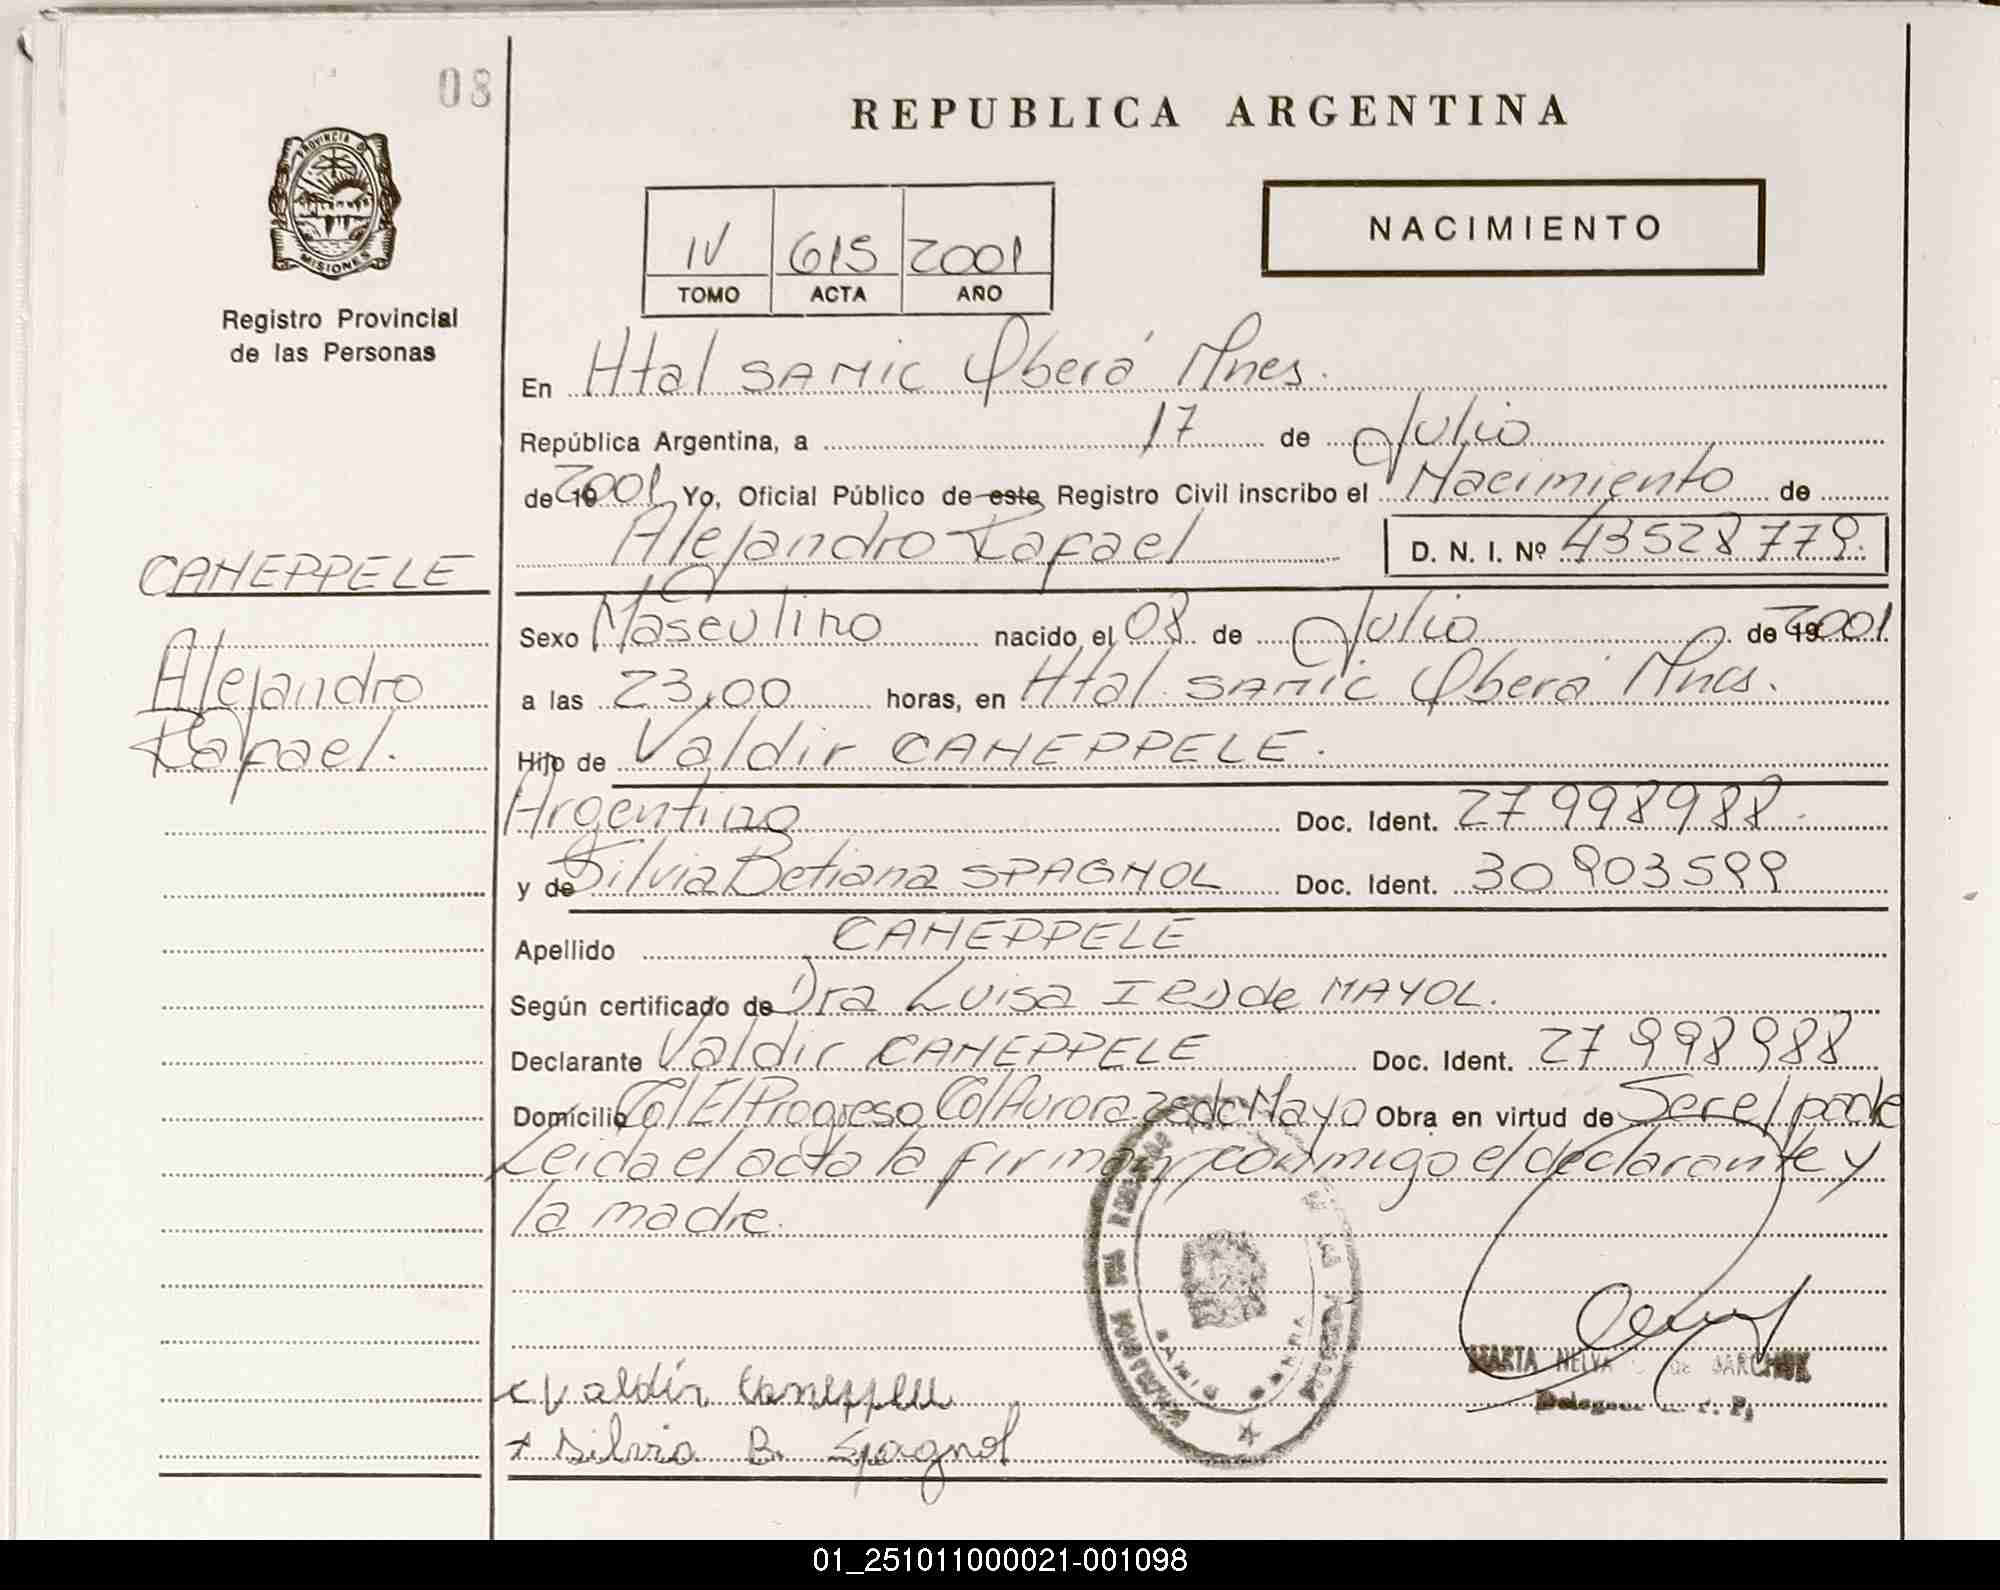 08
REPUBLICA ARGENTINA
PROVINCIA DE
MISIONES
Registro Provincial
de las Personas
IV 615 2001
TOMO ACTA AÑO
NACIMIENTO
En Htal SAMIC Oberá Mnes.
República Argentina, a 17 de Julio
de 19 2001 Yo, Oficial Público de este Registro Civil inscribo el Nacimiento de
Alejandro Rafael D. N. I. Nº 43528779.
CANEPPELE
Alejandro
Rafael.
Sexo Masculino nacido el 08 de Julio de 19 2001
a las 23,00 horas, en Htal. SAMIC Oberá Mnes.
Hijo de Valdir CANEPPELE.
Argentino Doc. Ident. 27 998988.
y de Silvia Betiana SPAGNOL Doc. Ident. 30 903599
Apellido CANEPPELE
Según certificado de Dra Luisa I de MAYOL.
Declarante Valdir CANEPPELE Doc. Ident. 27 998988
Domicilio Col El Progreso Col Aurora 25 de Mayo Obra en virtud de Ser el padre
Leida el acta la firman conmigo el declarante y
la madre.
Valdir Caneppele
Silvia B. Spagnol
MARTA NELVA de
01_251011000021-001098